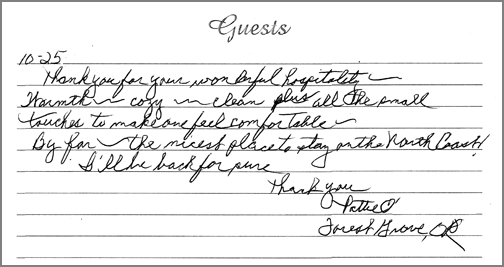 Guests
10-25
Thank you for your wonderful hospitality ~
Warmth ~ cozy ~ clean plus all the small
touches to make one feel comfortable ~
By far ~ the nicest place to stay on the North Coast!
I'll be back for sure
Thank you
Pattie O
Forest Grove, OR